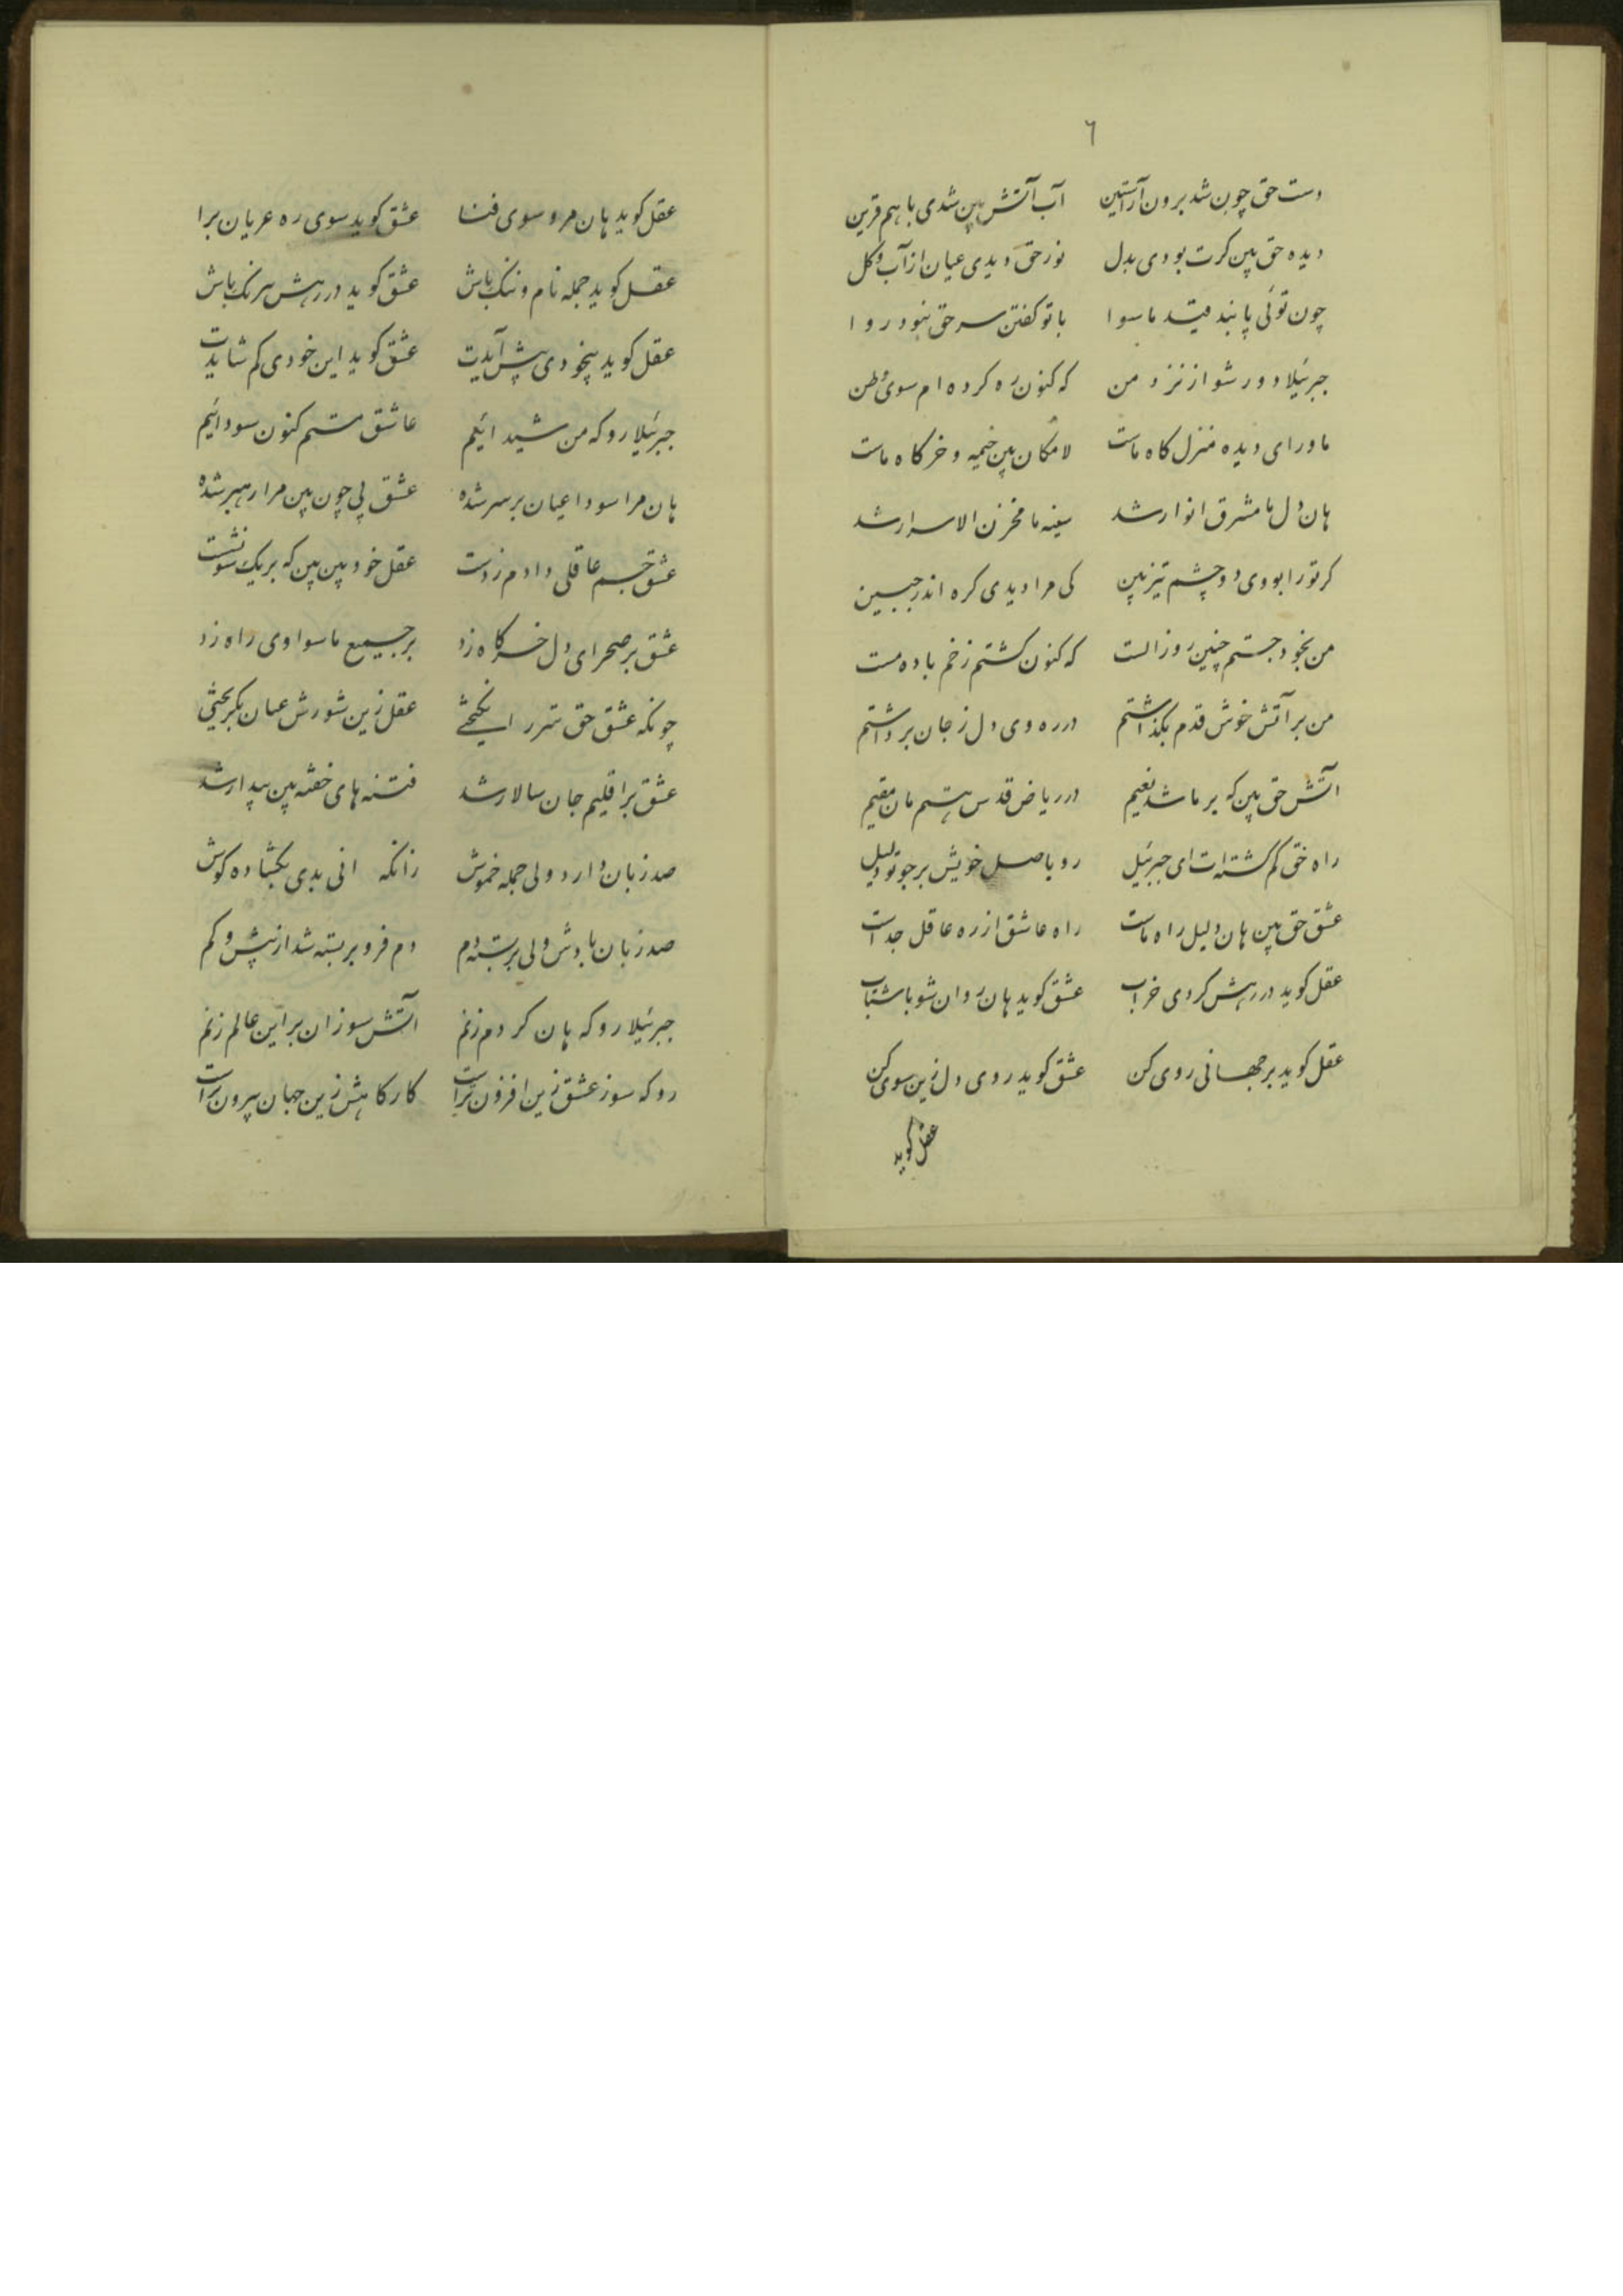 ٦
دست حق چون شد برون از آستین آب آتش بین شدی با هم قرین
دیده حق بین کرت بودی بدل نور حق دیدی عیان از آب و کل
چون توئی پابند قید ماسوا با تو کفتن سر حق نبود روا
جبرئیلا دور شو از نزد من که کنون ره کرده ام سوی وطن
ماورای دیده منزل کاه ماست لا مکان بین خیمه و خرکاه ماست
هان دل ما مشرق انوار شد سینه ما مخزن الاسرار شد
کر تو را بودی دو چشم تیزبین کی مرا دیدی کره اندر جبین
من بخود جستم چنین روز الست که کنون کشتم ز خم باده مست
من بر آتش خوش قدم بکذاشتم در ره وی دل ز جان برداشتم
آتش حق بین که بر ما شد نعیم در ریاض قدس هستم مان مقیم
راه حق کم کشته ات ای جبرئیل رو باصل خویش بر جو تو دلیل
عشق حق بین هان دلیل راه ماست راه عاشق از ره عاقل جداست
عقل کوید در رهش کردی خراب عشق کوید هان روان شو با شتاب
عقل کوید بر جهانی روی کن عشق کوید روی دل زین سوی کن
عقل کوید
عقل کوید هان مرو سوی فنا عشق کوید سوی ره عریان برا
عقل کوید جمله نام و ننک باش عشق کوید در رهش بیرنک باش
عقل کوید بیخودی پیش آیدت عشق کوید این خودی کم شایدت
جبرئیلا رو که من شیدائیم عاشق مستم کنون سودائیم
هان مرا سودا عیان بر سر شده عشق بی چون بین مرا رهبر شده
عشق جسم عاقلی دادم ز دست عقل خود بین بین که بر یک سو نشست
عشق بر صحرای دل خرکاه زد بر جمیع ماسوا وی راه زد
چونکه عشق حق شرر انکیختی عقل زین شورش عیان بکریختی
عشق بر اقلیم جان سالار شد فتنه های خفته بین بیدار شد
صد زبان دارد ولی جمله خموش زانکه انی بدی بکشاده کوش
صد زبان با وش ولی بر بسته دم دم فرو بر بسته شد از بیش و کم
جبرئیلا رو که هان کر دم زنم آتش سوزان بر این عالم زنم
رو که سوز عشق زین افزون تر است کار کاهش زین جهان بیرون تر است